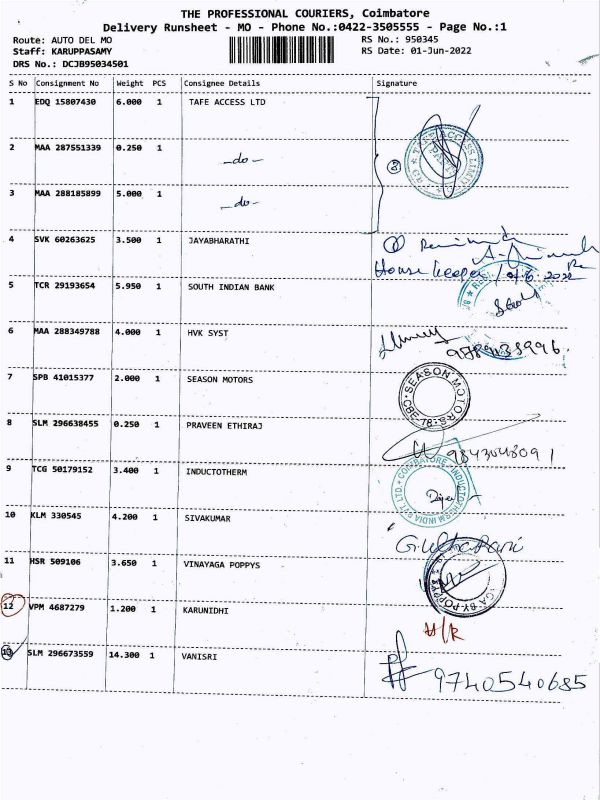 THE PROFESSIONAL COURIERS, Coimbatore
Delivery Runsheet - MO - Phone No.:0422-3505555 - Page No.:1
Route: AUTO DEL MO RS No.: 950345
Staff: KARUPPASAMY RS Date: 01-Jun-2022
DRS No.: DCJB95034501
S No Consignment No Weight PCS Consignee Details Signature
1 EDQ 15807430 6.000 1 TAFE ACCESS LTD
2 MAA 287551339 0.250 1 -do-
3 MAA 288185899 5.000 1 -do-
4 SVK 60263625 3.500 1 JAYABHARATHI
House keeper
5 TCR 29193654 5.950 1 SOUTH INDIAN BANK
6 MAA 288349788 4.000 1 HVK SYST
7 SPB 41015377 2.000 1 SEASON MOTORS
SEASON MOTORS
8 SLM 296638455 0.250 1 PRAVEEN ETHIRAJ
9843048091
9 TCG 50179152 3.400 1 INDUCTOTHERM
COIMBATORE INDUCTOTHERM INDIA PVT LTD.
10 KLM 330545 4.200 1 SIVAKUMAR
11 HSR 509106 3.650 1 VINAYAGA POPPYS
12 VPM 4687279 1.200 1 KARUNIDHI
13 SLM 296673559 14.300 1 VANISRI
9740540685